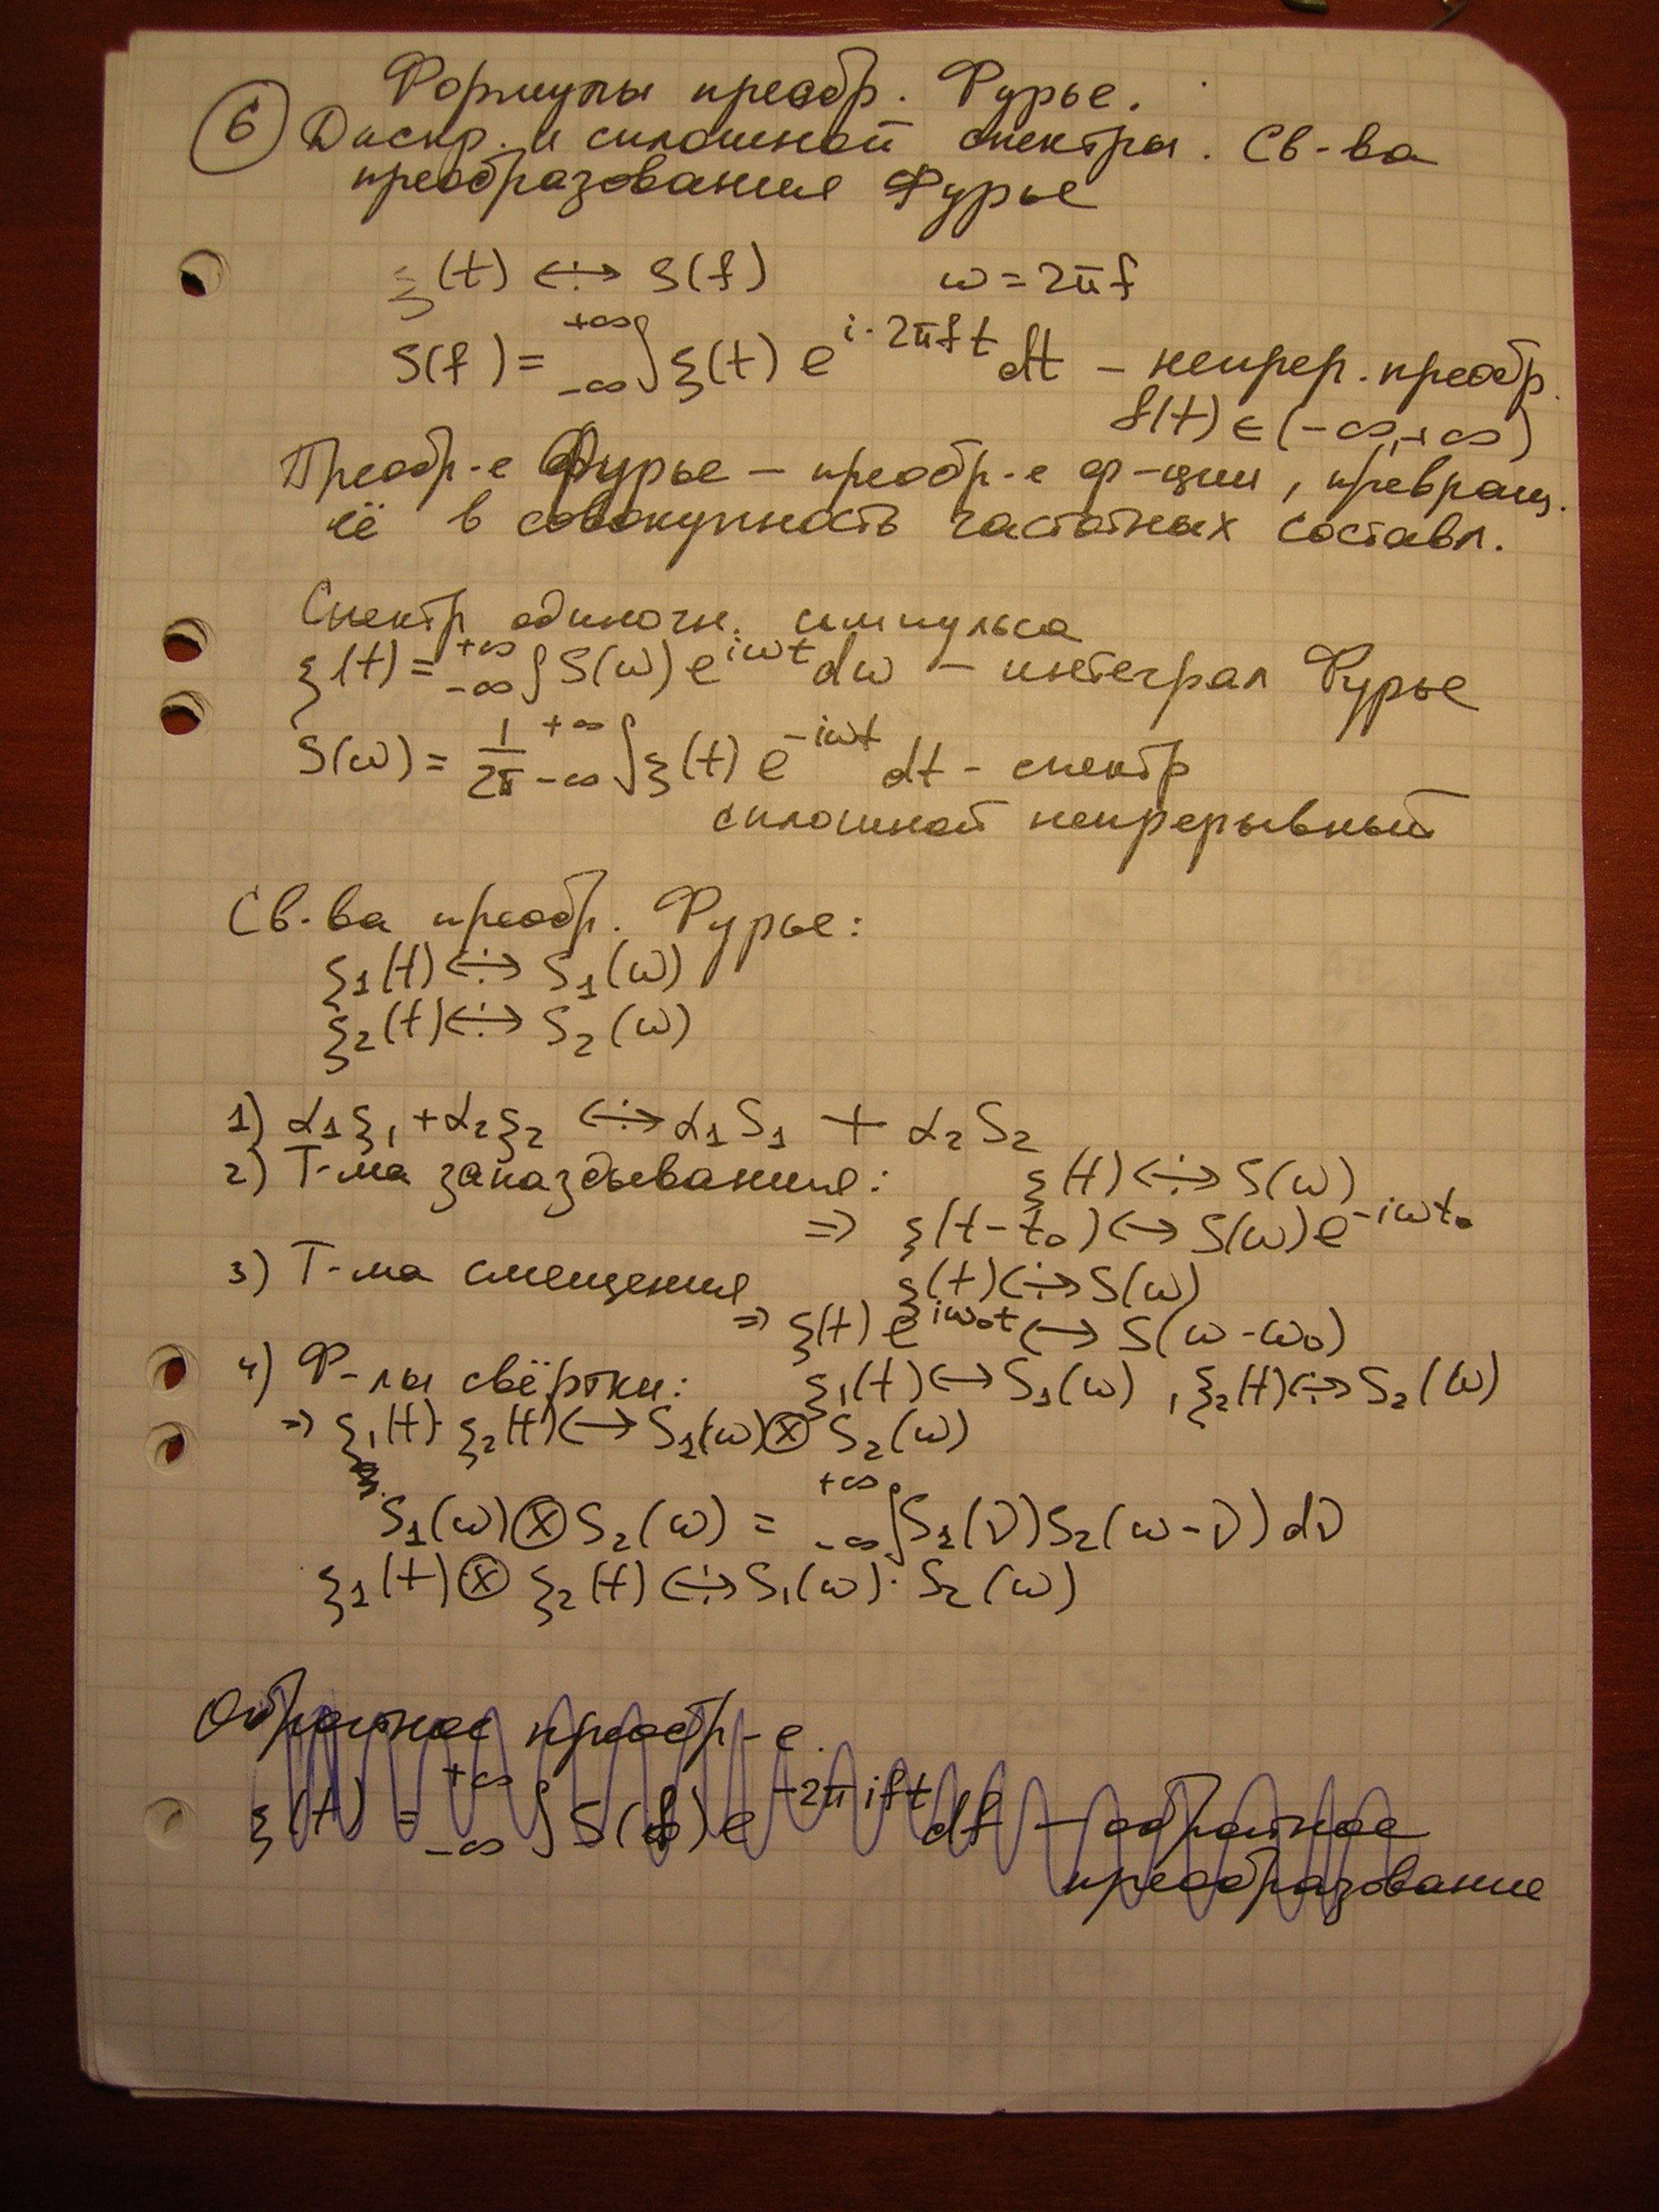 Формулы преобр. Фурье.
6 Дискр. и сплошной спектры. Св-ва
преобразования Фурье
ξ(t) <-·-> S(f) ω = 2πf
S(f) = -∞∫+∞ ξ(t) e^{i·2πft} dt – непрер. преобр.
f(t) ∈ (-∞,+∞)
Преобр-е Фурье – преобр-е ф-ции, превращ.
её в совокупность частотных составл.
Спектр одиночн. импульса
ξ(t) = -∞∫+∞ S(ω) e^{iωt} dω – интеграл Фурье
S(ω) = 1/2π -∞∫+∞ ξ(t) e^{-iωt} dt – спектр
сплошной непрерывный
Св-ва преобр. Фурье:
ξ₁(t) <-·-> S₁(ω)
ξ₂(t) <-·-> S₂(ω)
1) α₁ξ₁ + α₂ξ₂ <-·-> α₁S₁ + α₂S₂
2) Т-ма запаздывания: ξ(t) <-·-> S(ω)
=> ξ(t-t₀) <-> S(ω) e^{-iωt₀}
3) Т-ма смещения ξ(t) <-·-> S(ω)
=> ξ(t) e^{iω₀t} <-> S(ω-ω₀)
4) Ф-лы свёртки: ξ₁(t) <-> S₁(ω) , ξ₂(t) <-·-> S₂(ω)
=> ξ₁(t)·ξ₂(t) <-> S₁(ω) ⊗ S₂(ω)
S₁(ω) ⊗ S₂(ω) = -∞∫+∞ S₁(ν) S₂(ω-ν) dν
ξ₁(t) ⊗ ξ₂(t) <-·-> S₁(ω)·S₂(ω)
Обратное преобр-е.
ξ(t) = -∞∫+∞ S(f) e^{-2πift} df – обратное
преобразование